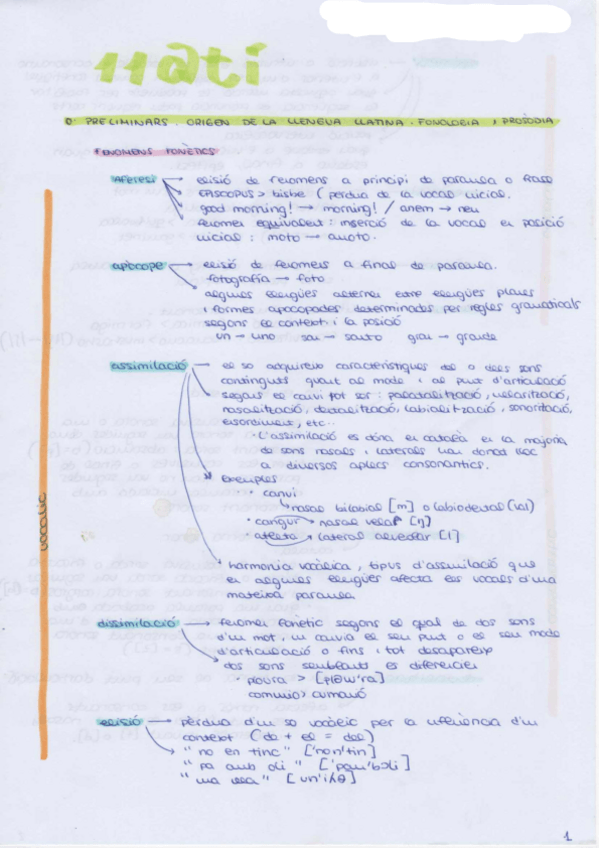 llatí
0. PRELIMINARS. ORIGEN DE LA LLENGUA LLATINA. FONOLOGIA I PROSÒDIA
FENOMENS FONÈTICS
afèresi → elisió de fenomens a principi de paraula o frase
EPISCOPUS > bisbe (pèrdua de la vocal inicial.
good morning! → morning! / anem → neu
fenomen equivalent: inserció de la vocal en posició
inicial: moto → amoto.
apòcope → elisió de fenomens a final de paraula.
fotografía → foto
algunes llengües alternen entre llengües planes
i formes apocopades determinades per regles gramaticals
segons el context i la posició
un → uno san → santo gran → grande
assimilació → el so adquireix característiques del o dels sons
continguts quant al mode i al punt d'articulació
segons el canvi pot ser: palatalització, velarització,
nasalització, dentalització, labialització, sonorització,
ensordiment, etc..
· L'assimilació es dóna en català en la majoria
de sons nasals i laterals han donat lloc
a diversos aplecs consonàntics.
Exemples
· canvi
nasal bilabial [m] o labiodental (val)
· cangur → nasal velar [ŋ]
lateral alveolar [l]
· harmonia vocàlica, tipus d'assimilació que
en algunes llengües afecta les vocals d'una
mateixa paraula
vocàlic
dissimilació → fenomen fonètic segons el qual de dos sons
d'un mot, un canvia el seu punt o el seu mode
d'articulació o fins i tot desapareix
dos sons semblants es diferencien
· pavra >
comunió > cumauó
elisió → pèrdua d'un so vocàlic per la influència d'un
context (de + el = del)
"no en tinc" ['non'tin]
"pa amb oli" ['pam'bɔli]
1